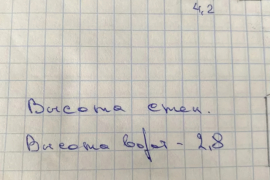 4,2
Высота стен.
Высота ворот - 2,8